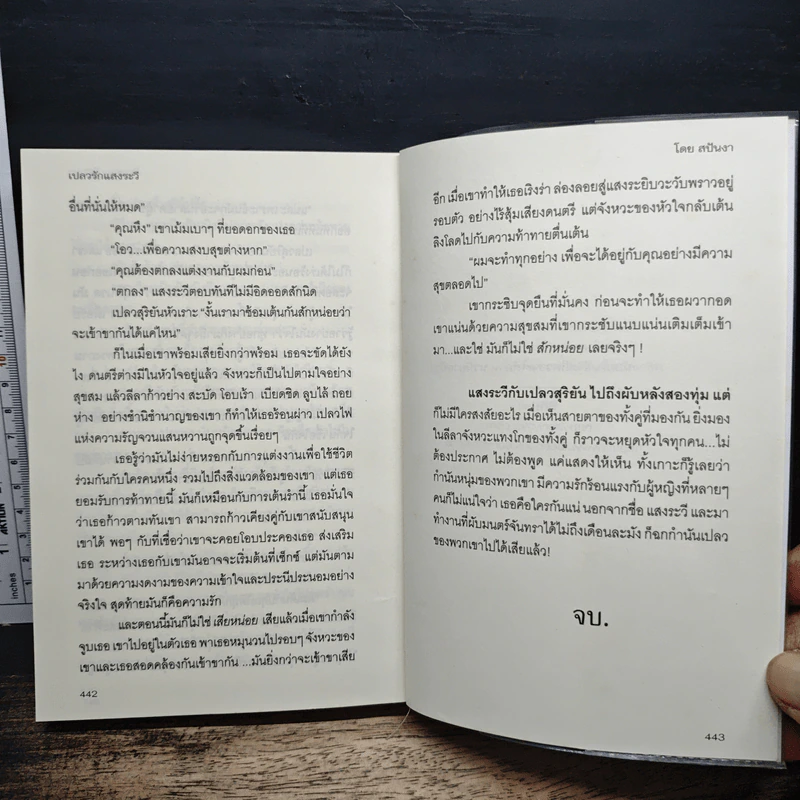 เปลวรักแสงระวี
อื่นที่นั่นให้หมด"
"คุณหึง" เขาเม้มเบาๆ ที่ยอดอกของเธอ
"โอว...เพื่อความสงบสุขต่างหาก"
"คุณต้องตกลงแต่งงานกับผมก่อน"
"ตกลง" แสงระวีตอบทันทีไม่มีอิดออดสักนิด
เปลวสุริยันหัวเราะ "งั้นเรามาซ้อมเต้นกันสักหน่อยว่า
จะเข้าขากันได้แค่ไหน"
ก็ในเมื่อเขาพร้อมเสียยิ่งกว่าพร้อม เธอจะขัดได้ยัง
ไง ดนตรีต่างมีในหัวใจอยู่แล้ว จังหวะก็เป็นไปตามใจอย่าง
สุขสม แล้วลีลาก้าวย่าง สะบัด โอบเร้า เบียดชิด ลูบไล้ ถอย
ห่าง อย่างชำนิชำนาญของเขา ก็ทำให้เธอร้อนผ่าว เปลวไฟ
แห่งความรัญจวนแสนหวานถูกจุดขึ้นเรื่อยๆ
เธอรู้ว่ามันไม่ง่ายหรอกกับการแต่งงานเพื่อใช้ชีวิต
ร่วมกันกับใครคนหนึ่ง รวมไปถึงสิ่งแวดล้อมของเขา แต่เธอ
ยอมรับการท้าทายนี้ มันก็เหมือนกับการเต้นรำนี้ เธอมั่นใจ
ว่าเธอก้าวตามทันเขา สามารถก้าวเคียงคู่กับเขาสนับสนุน
เขาได้ พอๆ กับที่เชื่อว่าเขาจะคอยโอบประคองเธอ ส่งเสริม
เธอ ระหว่างเธอกับเขามันอาจจะเริ่มต้นที่เซ็กซ์ แต่มันตาม
มาด้วยความงดงามของความเข้าใจและประนีประนอมอย่าง
จริงใจ สุดท้ายมันก็คือความรัก
และตอนนี้มันก็ไม่ใช่ เสียหน่อย เสียแล้วเมื่อเขากำลัง
จูบเธอ เขาไปอยู่ในตัวเธอ พาเธอหมุนวนไปรอบๆ จังหวะของ
เขาและเธอสอดคล้องกันเข้าขากัน ...มันยิ่งกว่าจะเข้าขาเสีย
442
โดย สปันงา
อีก เมื่อเขาทำให้เธอเริงร่า ล่องลอยสู่แสงระยิบวะวับพราวอยู่
รอบตัว อย่างไร้สุ้มเสียงดนตรี แต่จังหวะของหัวใจกลับเต้น
ลิงโลดไปกับความท้าทายตื่นเต้น
"ผมจะทำทุกอย่าง เพื่อจะได้อยู่กับคุณอย่างมีความ
สุขตลอดไป"
เขากระซิบจุดยืนที่มั่นคง ก่อนจะทำให้เธอผวากอด
เขาแน่นด้วยความสุขสมที่เขากระชับแนบแน่นเติมเต็มเข้า
มา...และใช่ มันก็ไม่ใช่ สักหน่อย เลยจริงๆ !
แสงระวีกับเปลวสุริยัน ไปถึงผับหลังสองทุ่ม แต่
ก็ไม่มีใครสงสัยอะไร เมื่อเห็นสายตาของทั้งคู่ที่มองกัน ยิ่งมอง
ในลีลาจังหวะแทงโกของทั้งคู่ ก็ราวจะหยุดหัวใจทุกคน...ไม่
ต้องประกาศ ไม่ต้องพูด แค่แสดงให้เห็น ทั้งเกาะก็รู้เลยว่า
กำนันหนุ่มของพวกเขา มีความรักร้อนแรงกับผู้หญิงที่หลายๆ
คนก็ไม่แน่ใจว่า เธอคือใครกันแน่ นอกจากชื่อ แสงระวี และมา
ทำงานที่ผับมนตร์จันทราได้ไม่ถึงเดือนละมัง ก็ฉกกำนันเปลว
ของพวกเขาไปได้เสียแล้ว!
จบ.
443
inches